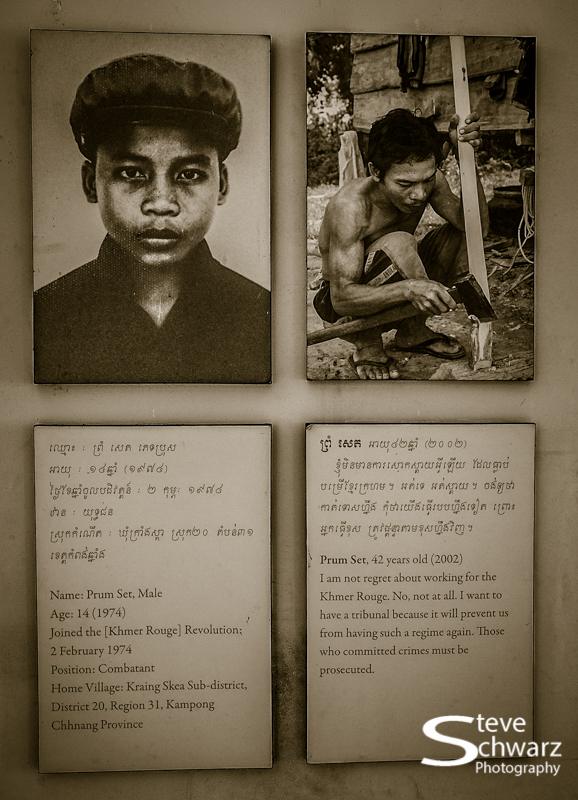 ឈ្មោះ : ព្រំ សេត ភេទប្រុស
អាយុ : ១៤ឆ្នាំ (១៩៧៤)
ថ្ងៃខែឆ្នាំចូលបដិវត្តន៍ : ២ កុម្ភៈ ១៩៧៤
ឋានៈ : យុទ្ធជន
ស្រុកកំណើត : ឃុំក្រាំងស្គា ស្រុក២០ តំបន់៣១
ខេត្តកំពង់ឆ្នាំង
Name: Prum Set, Male
Age: 14 (1974)
Joined the [Khmer Rouge] Revolution;
2 February 1974
Position: Combatant
Home Village: Kraing Skea Sub-district,
District 20, Region 31, Kampong
Chhnang Province
ព្រំ សេត អាយុ៤២ឆ្នាំ (២០០២)
ខ្ញុំមិនមានការសោកស្ដាយអ្វីឡើយ ដែលធ្លាប់
បម្រើខ្មែរក្រហម។ អត់ទេ អត់ស្ដាយ។ ចង់ឲ្យថា
កាត់ទោសហ្នឹង កុំថាយើងធ្វើរបបហ្នឹងទៀត ព្រោះ
អ្នកធ្វើខុស ត្រូវផ្ដន្ទាតាមខុសហ្នឹងវិញ។
Prum Set, 42 years old (2002)
I am not regret about working for the
Khmer Rouge. No, not at all. I want to
have a tribunal because it will prevent us
from having such a regime again. Those
who committed crimes must be
prosecuted.
Steve
Schwarz
Photography